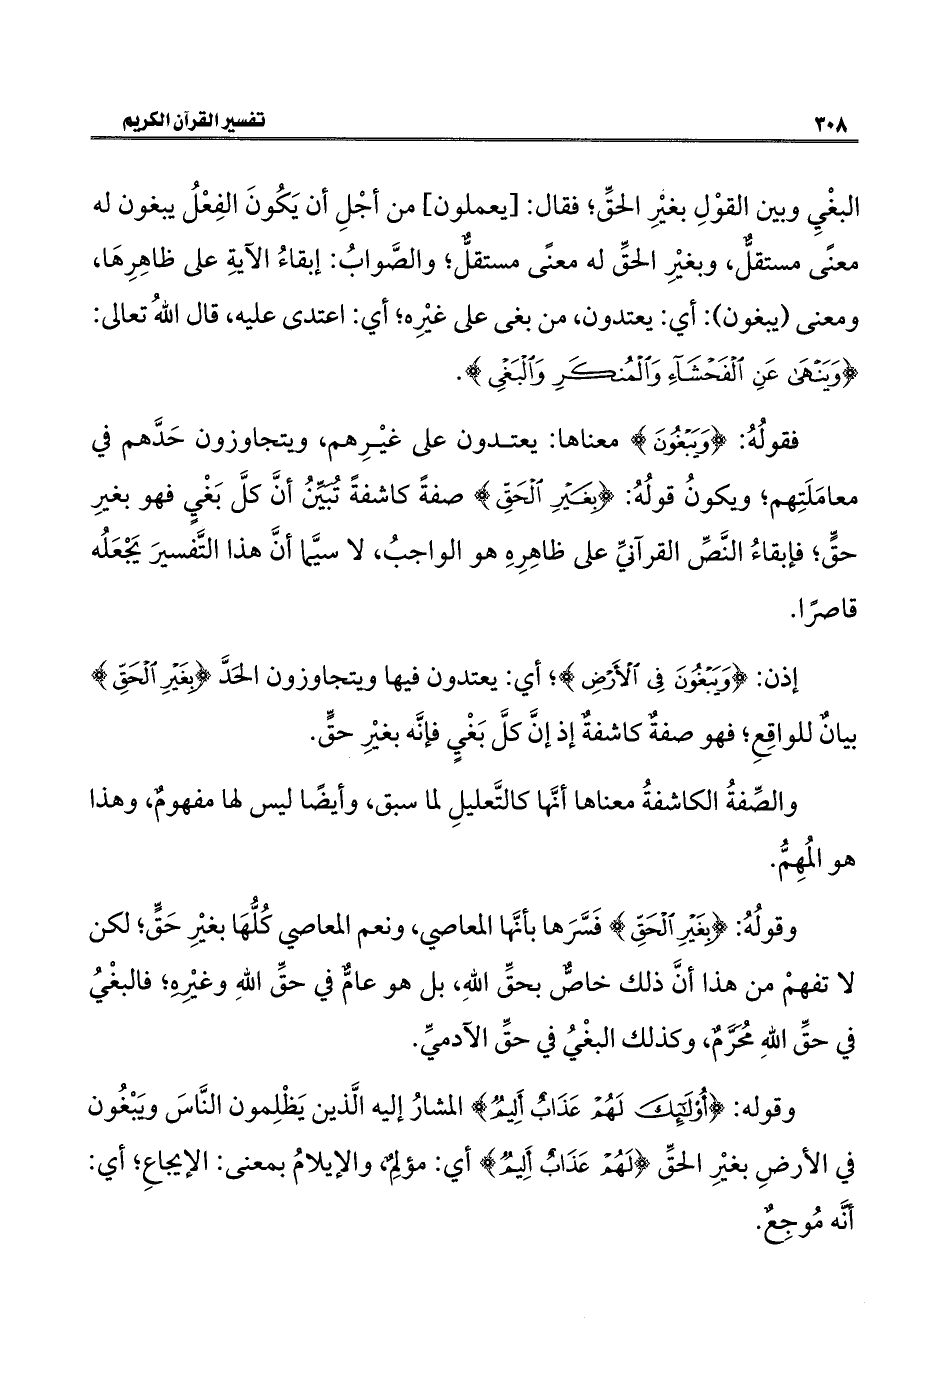 ٣٠٨ تفسير القرآن الكريم
البغْيِ وبين القوْلِ بغيْرِ الحقِّ؛ فقال: [يعملون] من أجْلِ أن يَكُونَ الفِعْلُ يبغون له
معنًى مستقلٌّ، وبغيْرِ الحقِّ له معنًى مستقلٌّ؛ والصَّوابُ: إبقاءُ الآيةِ على ظاهِرِهَا،
ومعنى (يبغون): أي: يعتدون، من بغى على غيْرِه؛ أي: اعتدى عليه، قال اللهُ تعالى:
﴿وَيَنْهَىٰ عَنِ ٱلْفَحْشَآءِ وَٱلْمُنكَرِ وَٱلْبَغْىِ﴾.
فقولُهُ: ﴿وَيَبْغُونَ﴾ معناها: يعتدون على غيْرِهم، ويتجاوزون حَدَّهم في
معامَلَتِهم؛ ويكونُ قولُهُ: ﴿بِغَيْرِ ٱلْحَقِّ﴾ صفةً كاشفةً تُبَيِّنُ أنَّ كلَّ بَغْيٍ فهو بغيرِ
حقٍّ؛ فإبقاءُ النَّصِّ القرآنيِّ على ظاهِرِهِ هو الواجبُ، لا سيَّما أنَّ هذا التَّفسيرَ يَجْعَلُه
قاصرًا.
إذن: ﴿وَيَبْغُونَ فِى ٱلْأَرْضِ﴾؛ أي: يعتدون فيها ويتجاوزون الحَدَّ ﴿بِغَيْرِ ٱلْحَقِّ﴾
بيانٌ للواقعِ؛ فهو صفةٌ كاشفةٌ إذ إنَّ كلَّ بَغْيٍ فإنَّه بغيْرِ حقٍّ.
والصِّفةُ الكاشفةُ معناها أنَّها كالتَّعليلِ لما سبق، وأيضًا ليس لها مفهومٌ، وهذا
هو المُهِمُّ.
وقولُهُ: ﴿بِغَيْرِ ٱلْحَقِّ﴾ فَسَّرَها بأنَّها المعاصي، ونعم المعاصي كُلُّهَا بغيْرِ حَقٍّ؛ لكن
لا تفهمْ من هذا أنَّ ذلك خاصٌّ بحقِّ اللهِ، بل هو عامٌّ في حقِّ اللهِ وغيْرِهِ؛ فالبغْيُ
في حقِّ اللهِ مُحَرَّمٌ، وكذلك البغْيُ في حقِّ الآدميِّ.
وقوله: ﴿أُوْلَٰٓئِكَ لَهُمْ عَذَابٌ أَلِيمٌ﴾ المشارُ إليه الَّذين يَظْلِمون النَّاسَ ويَبْغُون
في الأرضِ بغيْرِ الحقِّ ﴿لَهُمْ عَذَابٌ أَلِيمٌ﴾ أي: مؤلِمٌ، والإيلامُ بمعنى: الإيجاعِ؛ أي:
أنَّه مُوجِعٌ.